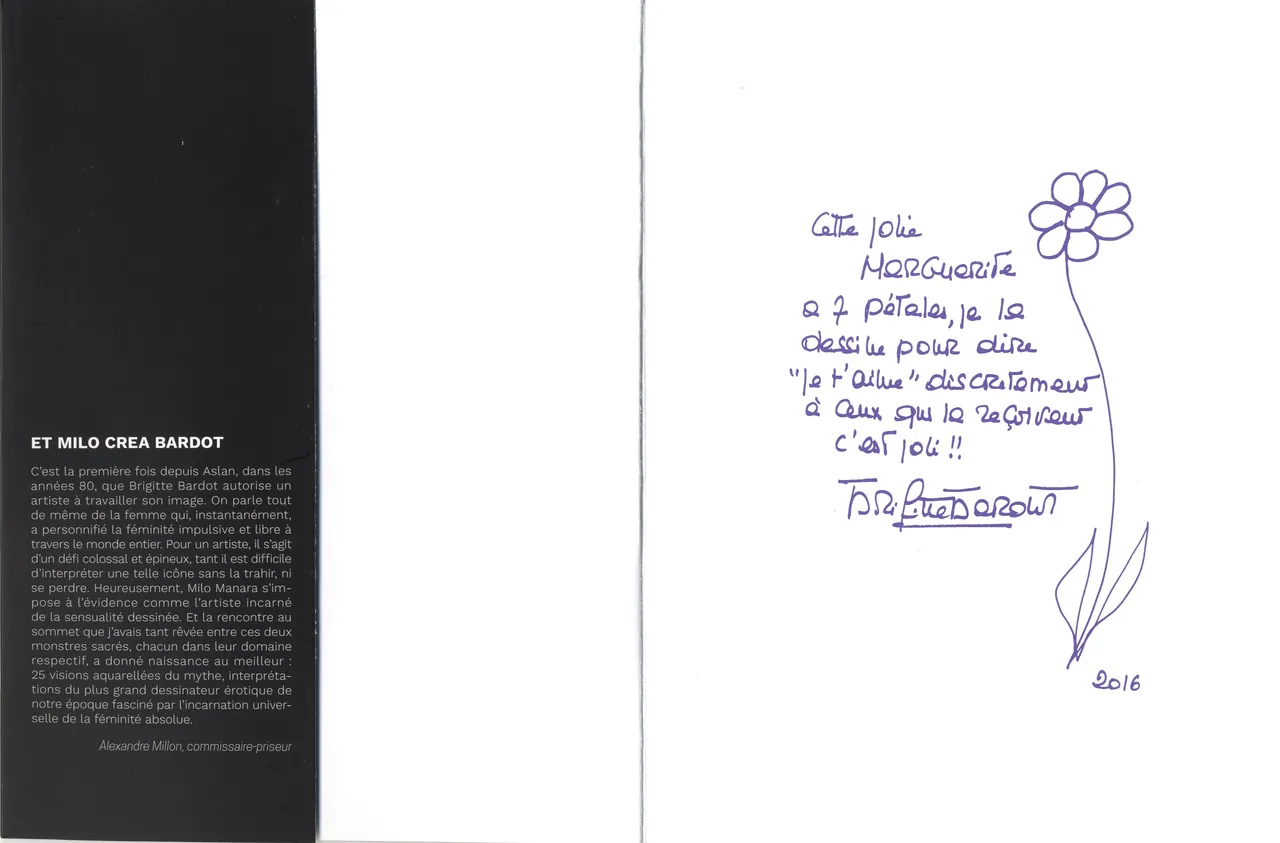 ET MILO CREA BARDOT
C'est la première fois depuis Aslan, dans les
années 80, que Brigitte Bardot autorise un
artiste à travailler son image. On parle tout
de même de la femme qui, instantanément,
a personnifié la féminité impulsive et libre à
travers le monde entier. Pour un artiste, il s'agit
d'un défi colossal et épineux, tant il est difficile
d'interpréter une telle icône sans la trahir, ni
se perdre. Heureusement, Milo Manara s'im-
pose à l'évidence comme l'artiste incarné
de la sensualité dessinée. Et la rencontre au
sommet que j'avais tant rêvée entre ces deux
monstres sacrés, chacun dans leur domaine
respectif, a donné naissance au meilleur :
25 visions aquarellées du mythe, interpréta-
tions du plus grand dessinateur érotique de
notre époque fasciné par l'incarnation univer-
selle de la féminité absolue.
Alexandre Millon, commissaire-priseur
Cette jolie
MARGUERITE
a 7 pétales, je la
dessine pour dire
"je t'aime" discrètement
à ceux qui la reçoivent
c'est joli !!
Brigitte Bardot
2016